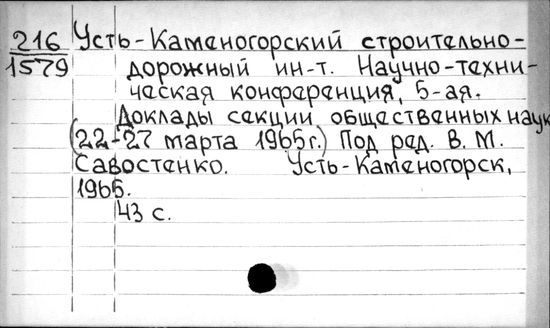 216 Усть-Каменогорский строительно-
1579 дорожный ин-т. Научно-техни-
ческая конференция, 5-ая.
Доклады секции общественных наук
(22-27 марта 1965г.) Под ред. В. М.
Савостенко. Усть-Каменогорск,
1965.
43 с.